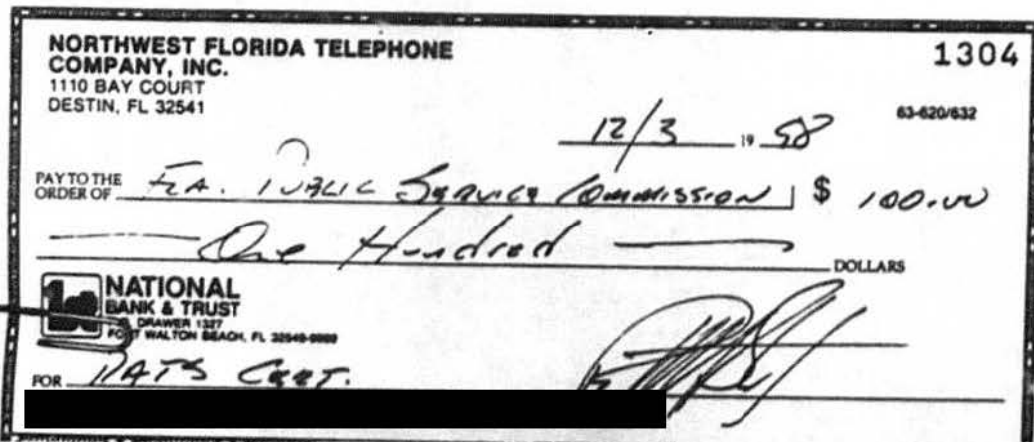 NORTHWEST FLORIDA TELEPHONE
COMPANY, INC.
1110 BAY COURT
DESTIN, FL 32541
1304
63-620/632
12/3 19 98
PAY TO THE
ORDER OF FLA. PUBLIC SERVICE COMMISSION $ 100.00
One Hundred DOLLARS
1st NATIONAL
BANK & TRUST
DRAWER 1327
FORT WALTON BEACH, FL
FOR PATS CERT.